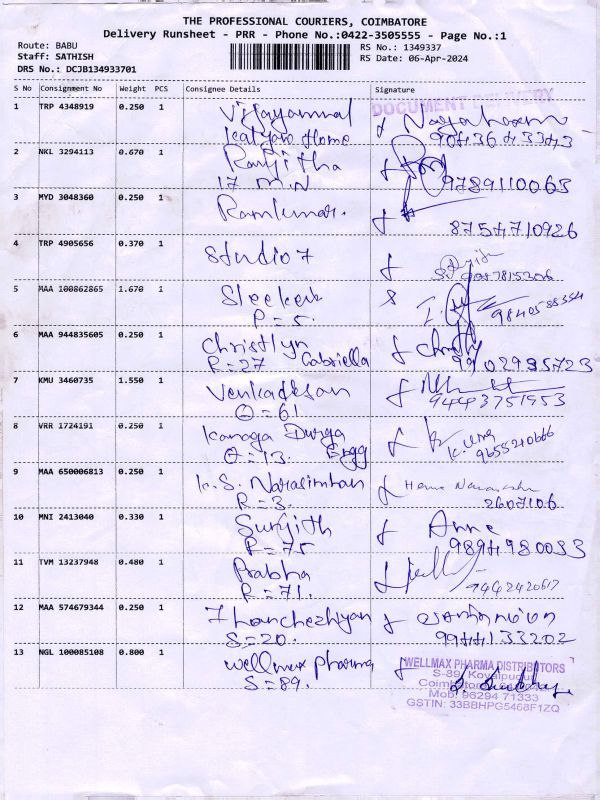 THE PROFESSIONAL COURIERS, COIMBATORE
Delivery Runsheet - PRR - Phone No.:0422-3505555 - Page No.:1
Route: BABU
Staff: SATHISH
DRS No.: DCJB134933701
RS No.: 1349337
RS Date: 06-Apr-2024
S No Consignment No Weight PCS Consignee Details Signature
DOCUMENT DELIVERY
1 TRP 4348919 0.250 1 Vijayammal
Home
2 NKL 3294113 0.670 1 Ranjitha
17 MIN 9789110063
3 MYD 3048360 0.250 1 Ramkumar.
8754710926
4 TRP 4905656 0.370 1 Studio 7
5 MAA 100862865 1.670 1
P = 5. 9840588354
6 MAA 944835605 0.250 1 Christlyn
R = 27 Gabriella 9902995723
7 KMU 3460735 1.550 1 Venkadesan
= 61 9443751953
8 VRR 1724191 0.250 1 Kanaga Durga
= 13. Engg 9655210666
9 MAA 650006813 0.250 1 K. S. Narasimhan
R = 3. 2607106
10 MNI 2413040 0.330 1 Surjith Anne
R = 75 9894980033
11 TVM 13237948 0.480 1 Prabha
R = 71. 9442420617
12 MAA 574679344 0.250 1 Thanchezhiyan
S = 20. 9944133202
13 NGL 100085108 0.800 1 Wellmax pharma
S = 89.
WELLMAX PHARMA DISTRIBUTORS
S-89, Kovaipudur
Mob: 96294 71333
GSTIN: 33BBHPG5468F1ZQ